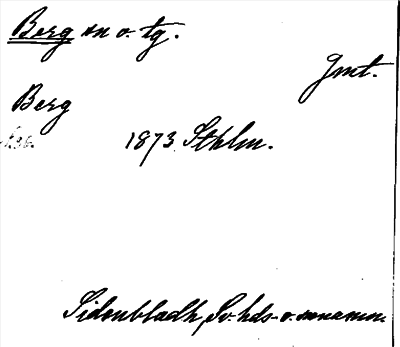 Berg sn o. tg.
Jmt.
Berg
1873 Sthlm.
Sidenbladh, Sv. hds- o. snnamn.